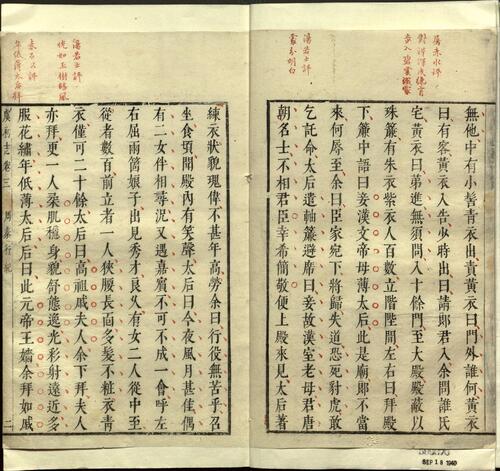 屠赤水評
湯若士評
湯若士評
恍如玉樹臨風
袁石公評
無他中有小髻青衣出責黃衣曰門外誰何黃衣
曰有客黃衣入告少時出曰請郎君入余問誰氏
宅黃衣曰弟進無須問入十餘門至大殿殿蔽以
珠簾有朱衣紫衣人百數立階陛間左右曰拜殿
下簾中語曰妾漢文帝母薄太后此是廟郎不當
來何辱至余曰臣家宛下將歸失道恐死豺虎敢
乞託命太后遣軸簾避席曰妾故漢室老母君唐
朝名士不相君臣幸希簡敬便上殿來見太后著
練衣狀貌瑰偉不甚年高勞余曰行役無苦乎召
坐食頃間殿內有笑聲太后曰今夜風月甚佳偶
有二女伴相尋況又遇嘉賓不可不成一會呼左
右屈兩箇娘子出見秀才良久有女二人從中至
從者數百前立者一人狹腰長面多髮不粧衣青
衣僅可二十餘太后曰高祖戚夫人余下拜夫人
亦拜更一人柔肌穩身貌舒態逸光彩射遠近多
服花繡年低薄太后后曰此元帝王嬙余拜如戚
虞初志卷三 周秦行紀 二
SEP 18 1940